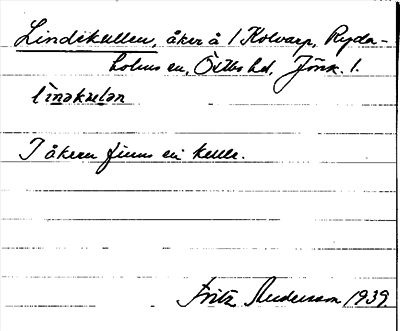 Lindekullen, åker å 1 Kolvarp, Ryda-
holms sn, Östbo hd, Jönk. l.
linəkulən
I åkern finns en kulle.
Fritz Andersson 1939.